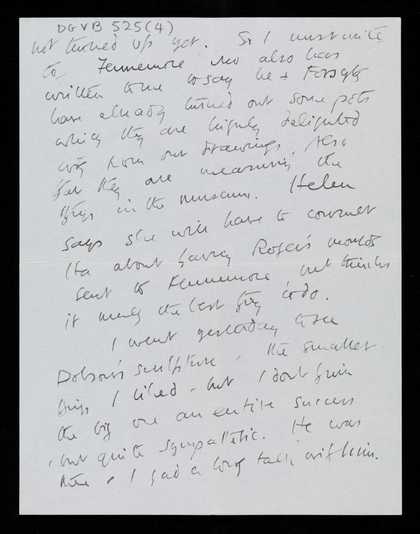 DGVB 525(4)
not turned up yet. So I must write
to Fennemore who also has
written to me to say he & Forsyth
have already turned out some pots
which they are highly delighted
with from our drawings. Also
that they are measuring the
things in the museum. Helen
says she will have to consult
Ha about having Roger's moulds
sent to Fennemore, but thinks
it much the best thing to do.
I went yesterday to see
Dobson's sculpture. The smaller
things I liked - but I don't think
the big one an entire success
- but quite sympathetic. He was
there & I had a long talk with him.